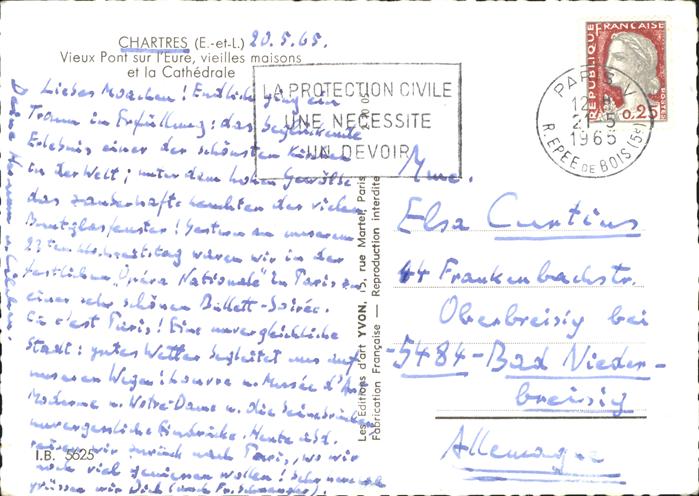 CHARTRES (E.-et-L.) 20.5.65.
Vieux Pont sur l'Eure, vieilles maisons
et la Cathédrale
Liebes Muschen! Endlich ging ein
Traum in Erfüllung: das beglückende
Erlebnis einer der schönsten Kirchen
in der Welt; unter dem hohen Gewölbe
das zauberhafte Leuchten der vielen
Buntglasfenster! Gestern an unserem
23ten Hochzeitstag waren wir in der
festlichen "Opéra Nationale" in Paris zu
einer sehr schönen Ballett-Soirée.
Ça c'est Paris! Eine unvergleichliche
Stadt; gutes Wetter begleitet uns auf
unseren Wegen! Louvre u. Musée d'Art
Moderne u. Notre-Dame u. die Seinebrücken
unvergessliche Eindrücke. Heute Abd.
reisen wir zurück nach Paris, wo wir
noch viel geniessen wollen!
grüssen wir Dich
Deine Hermann u.
I.B. 5625
Les Editions d'art YVON, 15, rue Martel, Paris
Fabrication Française — Reproduction interdite
LA PROTECTION CIVILE
UNE NECESSITE
UN DEVOIR
PARIS V
21-5
1965
R. EPEE DE BOIS (5e)
REPUBLIQUE FRANÇAISE
POSTES
0,25
Mme.
Elsa Curtius
44 Frankenbachstr.
Oberbreisig bei
-5484-Bad Nieder-
breisig
Allemagne